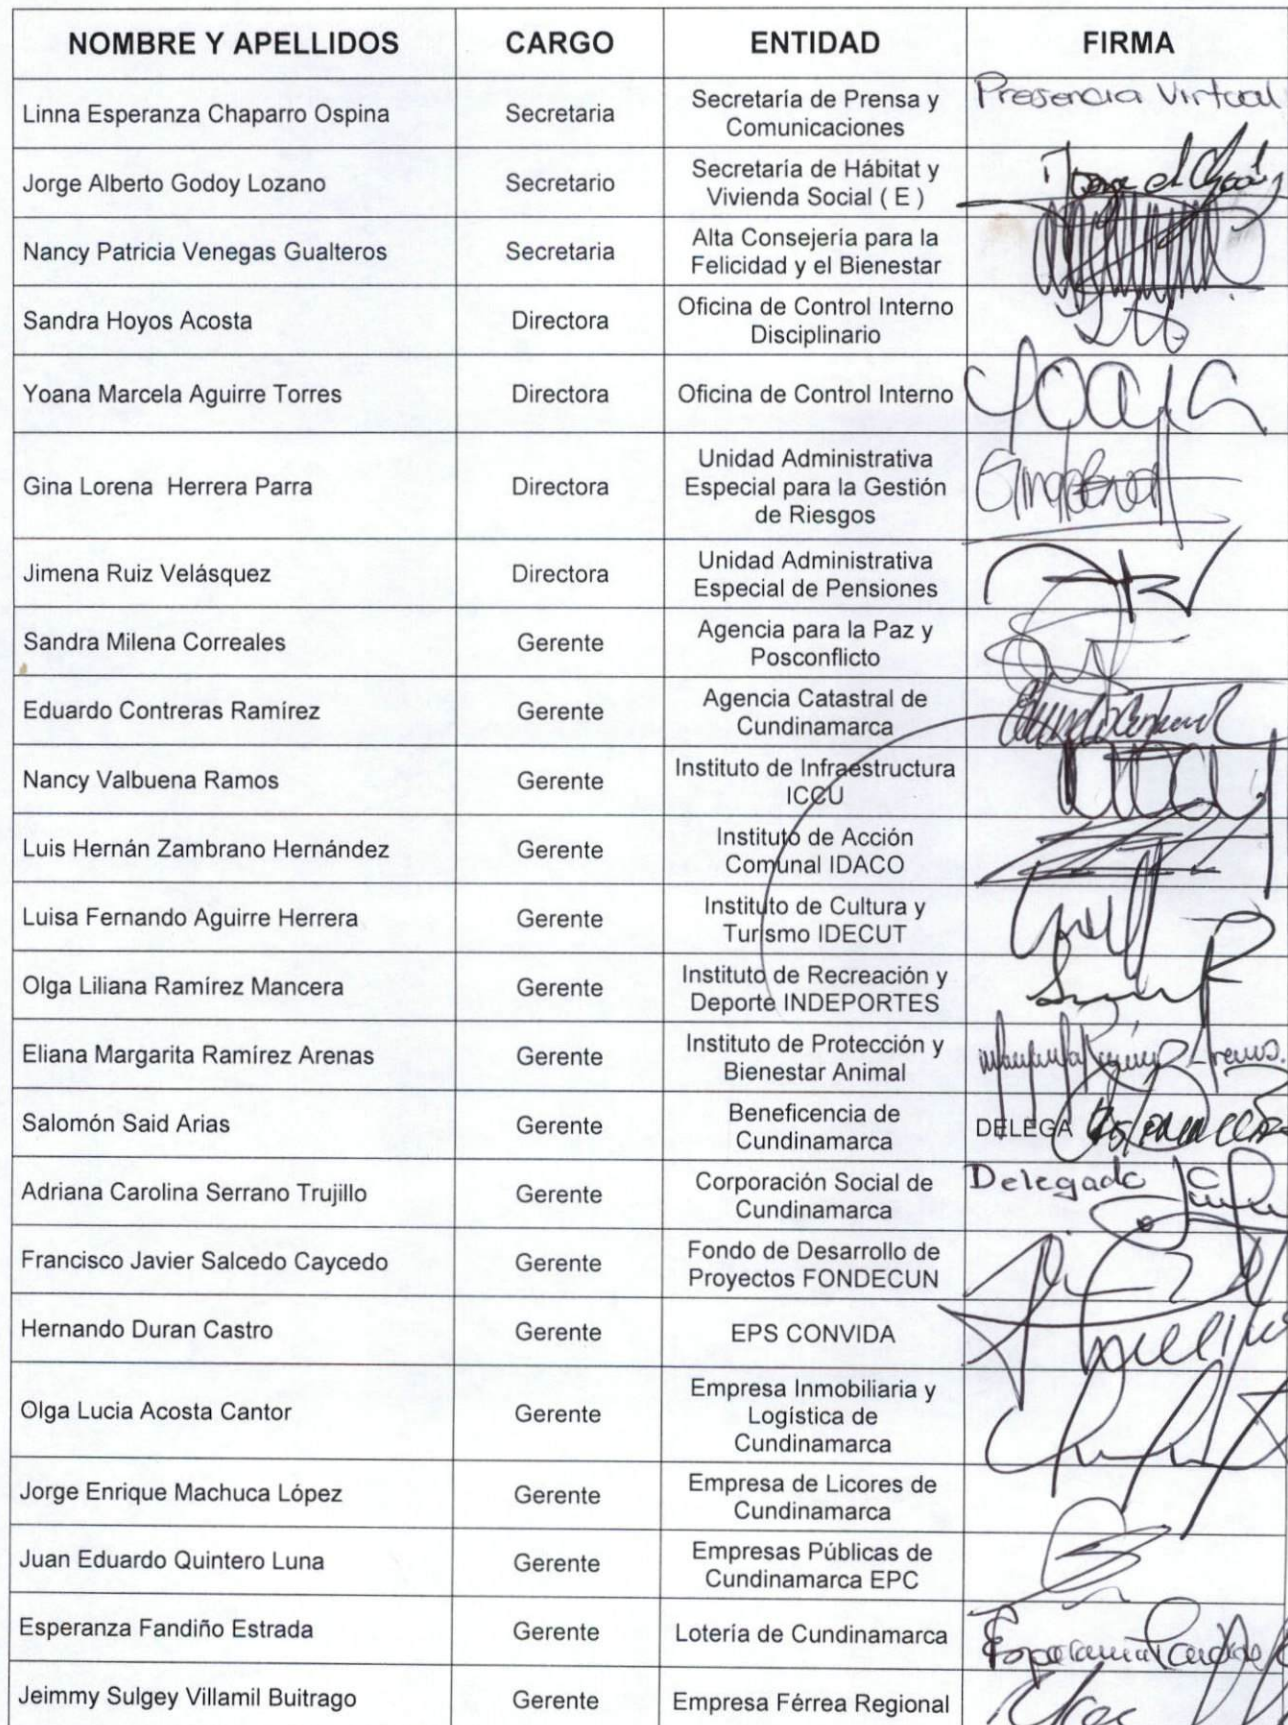 NOMBRE Y APELLIDOS CARGO ENTIDAD FIRMA
Linna Esperanza Chaparro Ospina Secretaria Secretaría de Prensa y
Comunicaciones Presencia Virtual
Jorge Alberto Godoy Lozano Secretario Secretaría de Hábitat y
Vivienda Social ( E )
Nancy Patricia Venegas Gualteros Secretaria Alta Consejería para la
Felicidad y el Bienestar
Sandra Hoyos Acosta Directora Oficina de Control Interno
Disciplinario
Yoana Marcela Aguirre Torres Directora Oficina de Control Interno
Gina Lorena Herrera Parra Directora Unidad Administrativa
Especial para la Gestión
de Riesgos
Jimena Ruiz Velásquez Directora Unidad Administrativa
Especial de Pensiones
Sandra Milena Correales Gerente Agencia para la Paz y
Posconflicto
Eduardo Contreras Ramírez Gerente Agencia Catastral de
Cundinamarca
Nancy Valbuena Ramos Gerente Instituto de Infraestructura
ICCU
Luis Hernán Zambrano Hernández Gerente Instituto de Acción
Comunal IDACO
Luisa Fernando Aguirre Herrera Gerente Instituto de Cultura y
Turismo IDECUT
Olga Liliana Ramírez Mancera Gerente Instituto de Recreación y
Deporte INDEPORTES
Eliana Margarita Ramírez Arenas Gerente Instituto de Protección y
Bienestar Animal
Salomón Said Arias Gerente Beneficencia de
Cundinamarca DELEGA
Adriana Carolina Serrano Trujillo Gerente Corporación Social de
Cundinamarca Delegado
Francisco Javier Salcedo Caycedo Gerente Fondo de Desarrollo de
Proyectos FONDECUN
Hernando Duran Castro Gerente EPS CONVIDA
Olga Lucia Acosta Cantor Gerente Empresa Inmobiliaria y
Logística de
Cundinamarca
Jorge Enrique Machuca López Gerente Empresa de Licores de
Cundinamarca
Juan Eduardo Quintero Luna Gerente Empresas Públicas de
Cundinamarca EPC
Esperanza Fandiño Estrada Gerente Lotería de Cundinamarca
Jeimmy Sulgey Villamil Buitrago Gerente Empresa Férrea Regional